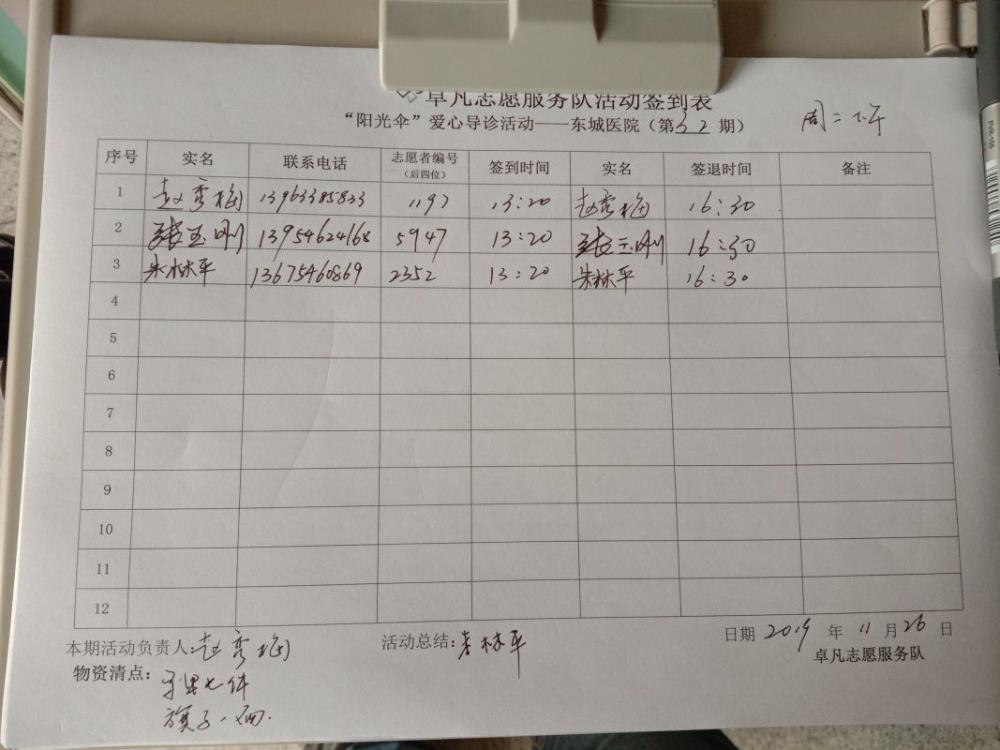 卓凡志愿服务队活动签到表
“阳光伞”爱心导诊活动——东城医院（第32期） 周二下午
序号 实名 联系电话 志愿者编号（后四位） 签到时间 实名 签退时间 备注
1 赵秀梅 13963385833 1197 13:20 赵秀梅 16:30
2 张玉刚 13954624168 5947 13:20 张玉刚 16:30
3 朱林平 13675460869 2352 13:20 朱林平 16:30
4
5
6
7
8
9
10
11
12
本期活动负责人:赵秀梅 活动总结:朱林平 日期 2019 年 11 月 26 日
卓凡志愿服务队
物资清点：
七件
旗子一面.